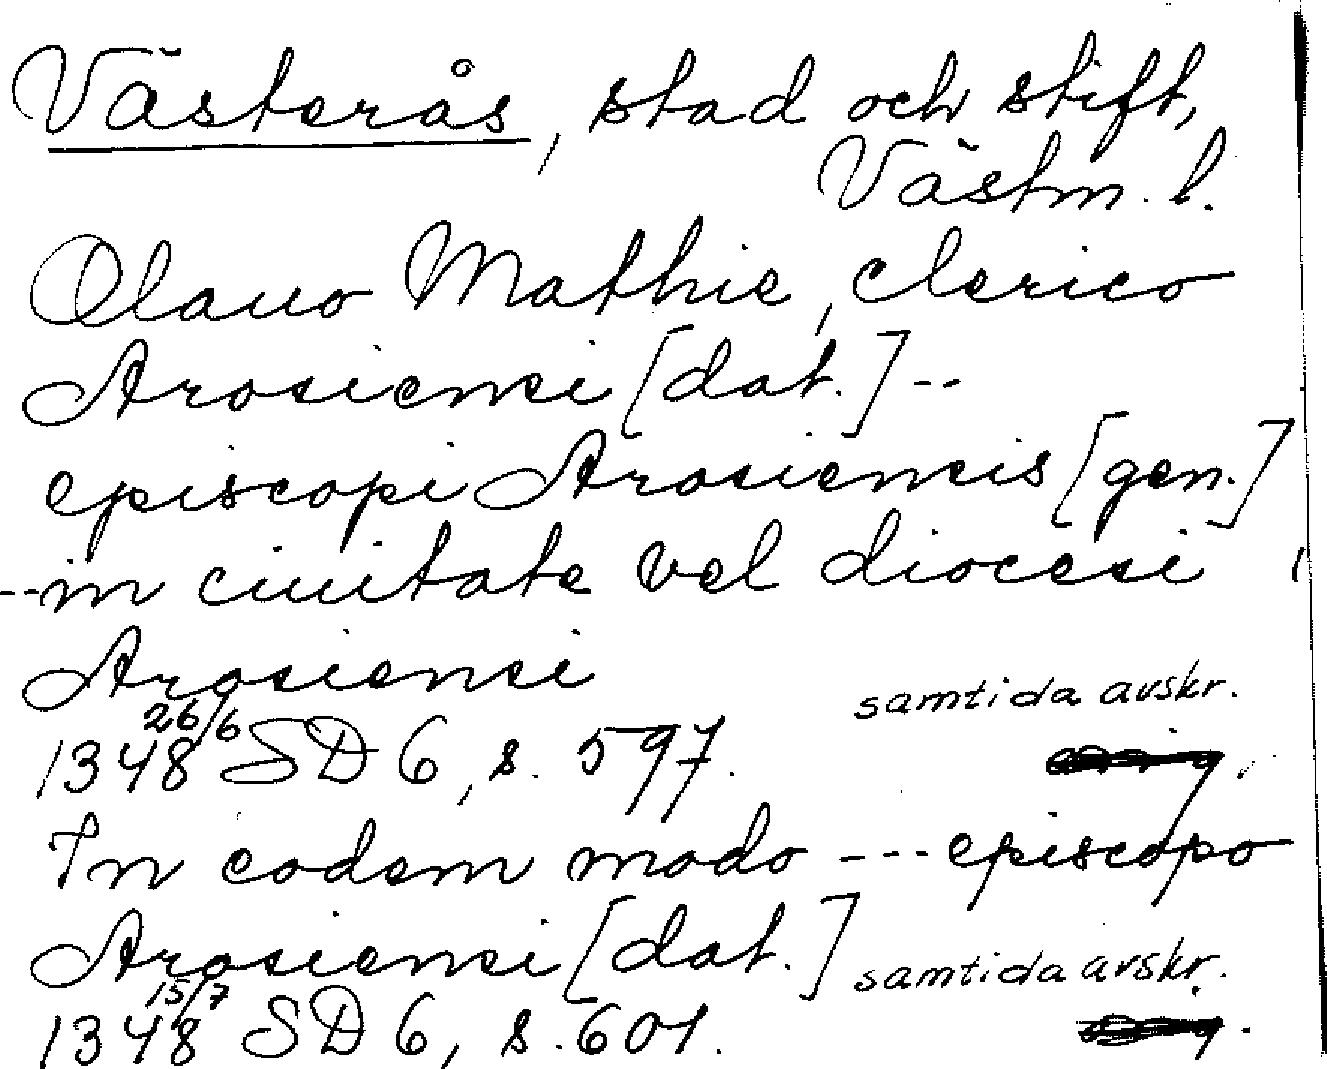 Västerås, stad och stift,
Västm. l.
Olauo Mathie, clerico
Arosiensi [dat.] --
episcopi Arosiensis [gen.]
-- in ciuitate vel diocesi
Arosiensi
samtida avskr.
1348 26/6 SD 6, s. 597.
In eodem modo --- episcopo
Arosiensi [dat.] samtida avskr.
1348 15/7 SD 6, s. 601.